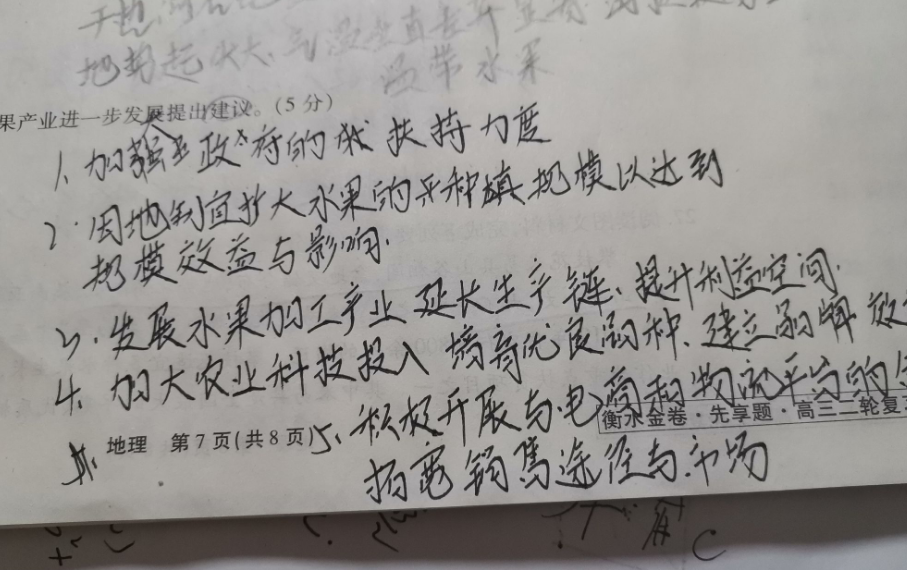 地势起伏大、气温垂直差异显著
温带水果
果产业进一步发展提出建议。(5分)
1、加强政府的扶持力度
2、因地制宜扩大水果的种植规模以达到
规模效益与影响.
3、发展水果加工产业 延长生产链、提升利益空间.
4、加大农业科技投入 培育优良品种、建立品牌效
5、积极开展与电商和物流平台的
衡水金卷·先享题·高三二轮复
地理 第7页(共8页)
拓宽销售途径与市场
C